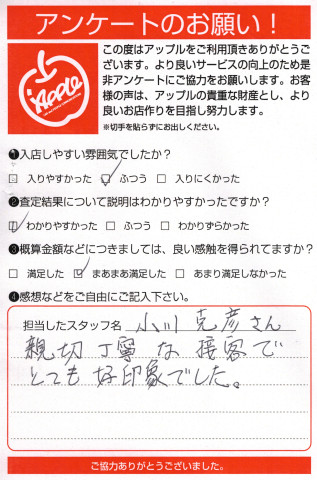 アンケートのお願い！
Apple
この度はアップルをご利用頂きありがとうご
ざいます。より良いサービスの向上のため是
非アンケートにご協力をお願いします。お客
様の声は、アップルの貴重な財産とし、より
良いお店作りを目指し努力します。
※切手を貼らずにお出しください。
❶入店しやすい雰囲気でしたか？
□ 入りやすかった ☑ ふつう □ 入りにくかった
❷査定結果について説明はわかりやすかったですか？
☑ わかりやすかった □ ふつう □ わかりずらかった
❸概算金額などにつきましては、良い感触を得られてますか？
□ 満足した ☑ まあまあ満足した □ あまり満足しなかった
❹感想などをご自由にご記入下さい。
担当したスタッフ名 小川 克彦さん
親切丁寧な接客で
とても好印象でした。
ご協力ありがとうございました。